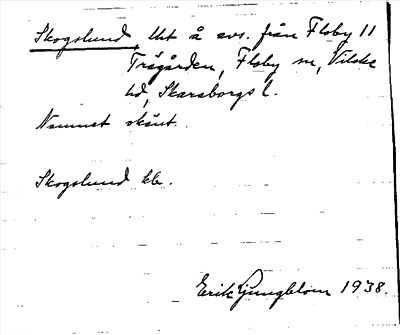 Skogslund, lht å avs. från Floby 11
Trägården, Floby sn, Vilske
hd, Skaraborgs l.
Namnet okänt.
Skogslund kb.
Erik Ljungblom 1938.